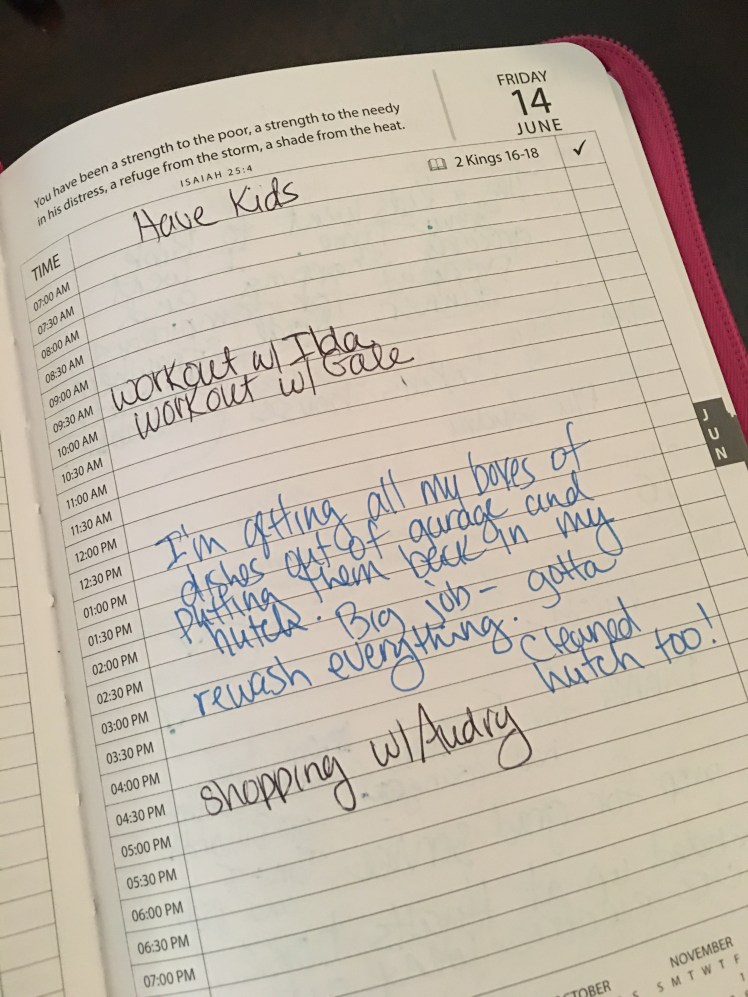 You have been a strength to the poor, a strength to the needy
in his distress, a refuge from the storm, a shade from the heat.
ISAIAH 25:4
FRIDAY
14
JUNE
2 Kings 16-18 ✓
Have Kids
TIME
07:00 AM
07:30 AM
08:00 AM
08:30 AM
09:00 AM workout w/ Ilda
09:30 AM workout w/ Gale
10:00 AM
10:30 AM
11:00 AM
11:30 AM
12:00 PM I'm gtting all my boxes of
12:30 PM dishes out of garage and
01:00 PM putting them back in my
01:30 PM hutch. Big job- gotta
02:00 PM
02:30 PM rewash everything. Cleaned
03:00 PM hutch too!
03:30 PM
04:00 PM
04:30 PM shopping w/ Audry
05:00 PM
05:30 PM
06:00 PM
06:30 PM
07:00 PM
JUN
NOVEMBER
S M T W T F